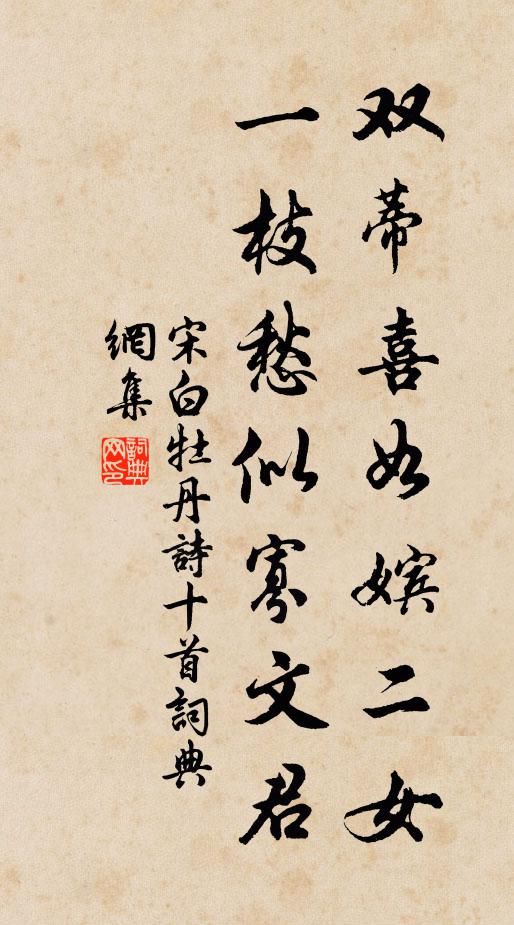 双蒂喜如嫔二女
一枝愁似寡文君
宋白牡丹詩十首詞典
網集
詞典網印